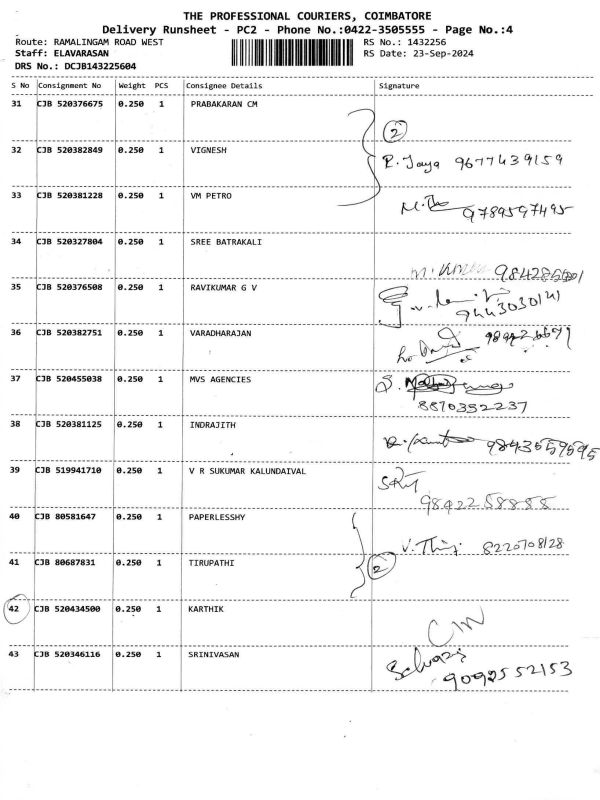 THE PROFESSIONAL COURIERS, COIMBATORE
Delivery Runsheet - PC2 - Phone No.:0422-3505555 - Page No.:4
Route: RAMALINGAM ROAD WEST RS No.: 1432256
Staff: ELAVARASAN RS Date: 23-Sep-2024
DRS No.: DCJB143225604
S No Consignment No Weight PCS Consignee Details Signature
31 CJB 520376675 0.250 1 PRABAKARAN CM
2
32 CJB 520382849 0.250 1 VIGNESH
R. Jaya 9677439159
33 CJB 520381228 0.250 1 VM PETRO
9789597495
34 CJB 520327804 0.250 1 SREE BATRAKALI
35 CJB 520376508 0.250 1 RAVIKUMAR G V
9443030141
36 CJB 520382751 0.250 1 VARADHARAJAN
37 CJB 520455038 0.250 1 MVS AGENCIES
8870352237
38 CJB 520381125 0.250 1 INDRAJITH
9843559595
39 CJB 519941710 0.250 1 V R SUKUMAR KALUNDAIVAL
9842258888
40 CJB 80581647 0.250 1 PAPERLESSHY
8220708128
41 CJB 80687831 0.250 1 TIRUPATHI
2
42 CJB 520434500 0.250 1 KARTHIK
43 CJB 520346116 0.250 1 SRINIVASAN
9092552153